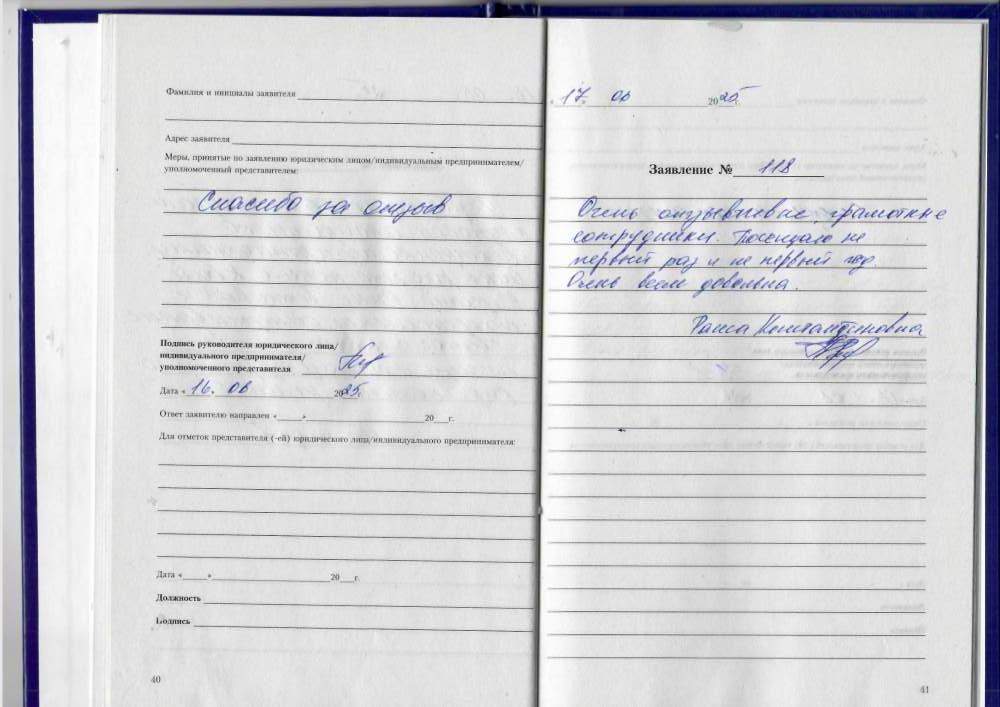 Фамилия и инициалы заявителя
Адрес заявителя
Меры, принятые по заявлению юридическим лицом/индивидуальным предпринимателем/
уполномоченный представителем:
Спасибо за отзыв
Подпись руководителя юридического лица/
индивидуального предпринимателя/
уполномоченного представителя
Дата « 16. 06 2025г.
Ответ заявителю направлен «____»____20___г.
Для отметок представителя (-ей) юридического лица/индивидуального предпринимателя:
Дата «____»____20___г.
Должность
Подпись
40
17. 06 2025г.
Заявление № 118
Очень отзывчивые, грамотные
сотрудники. Посещаю не
первый раз и не первый год.
Очень всем довольна.
Раиса Константиновна
41